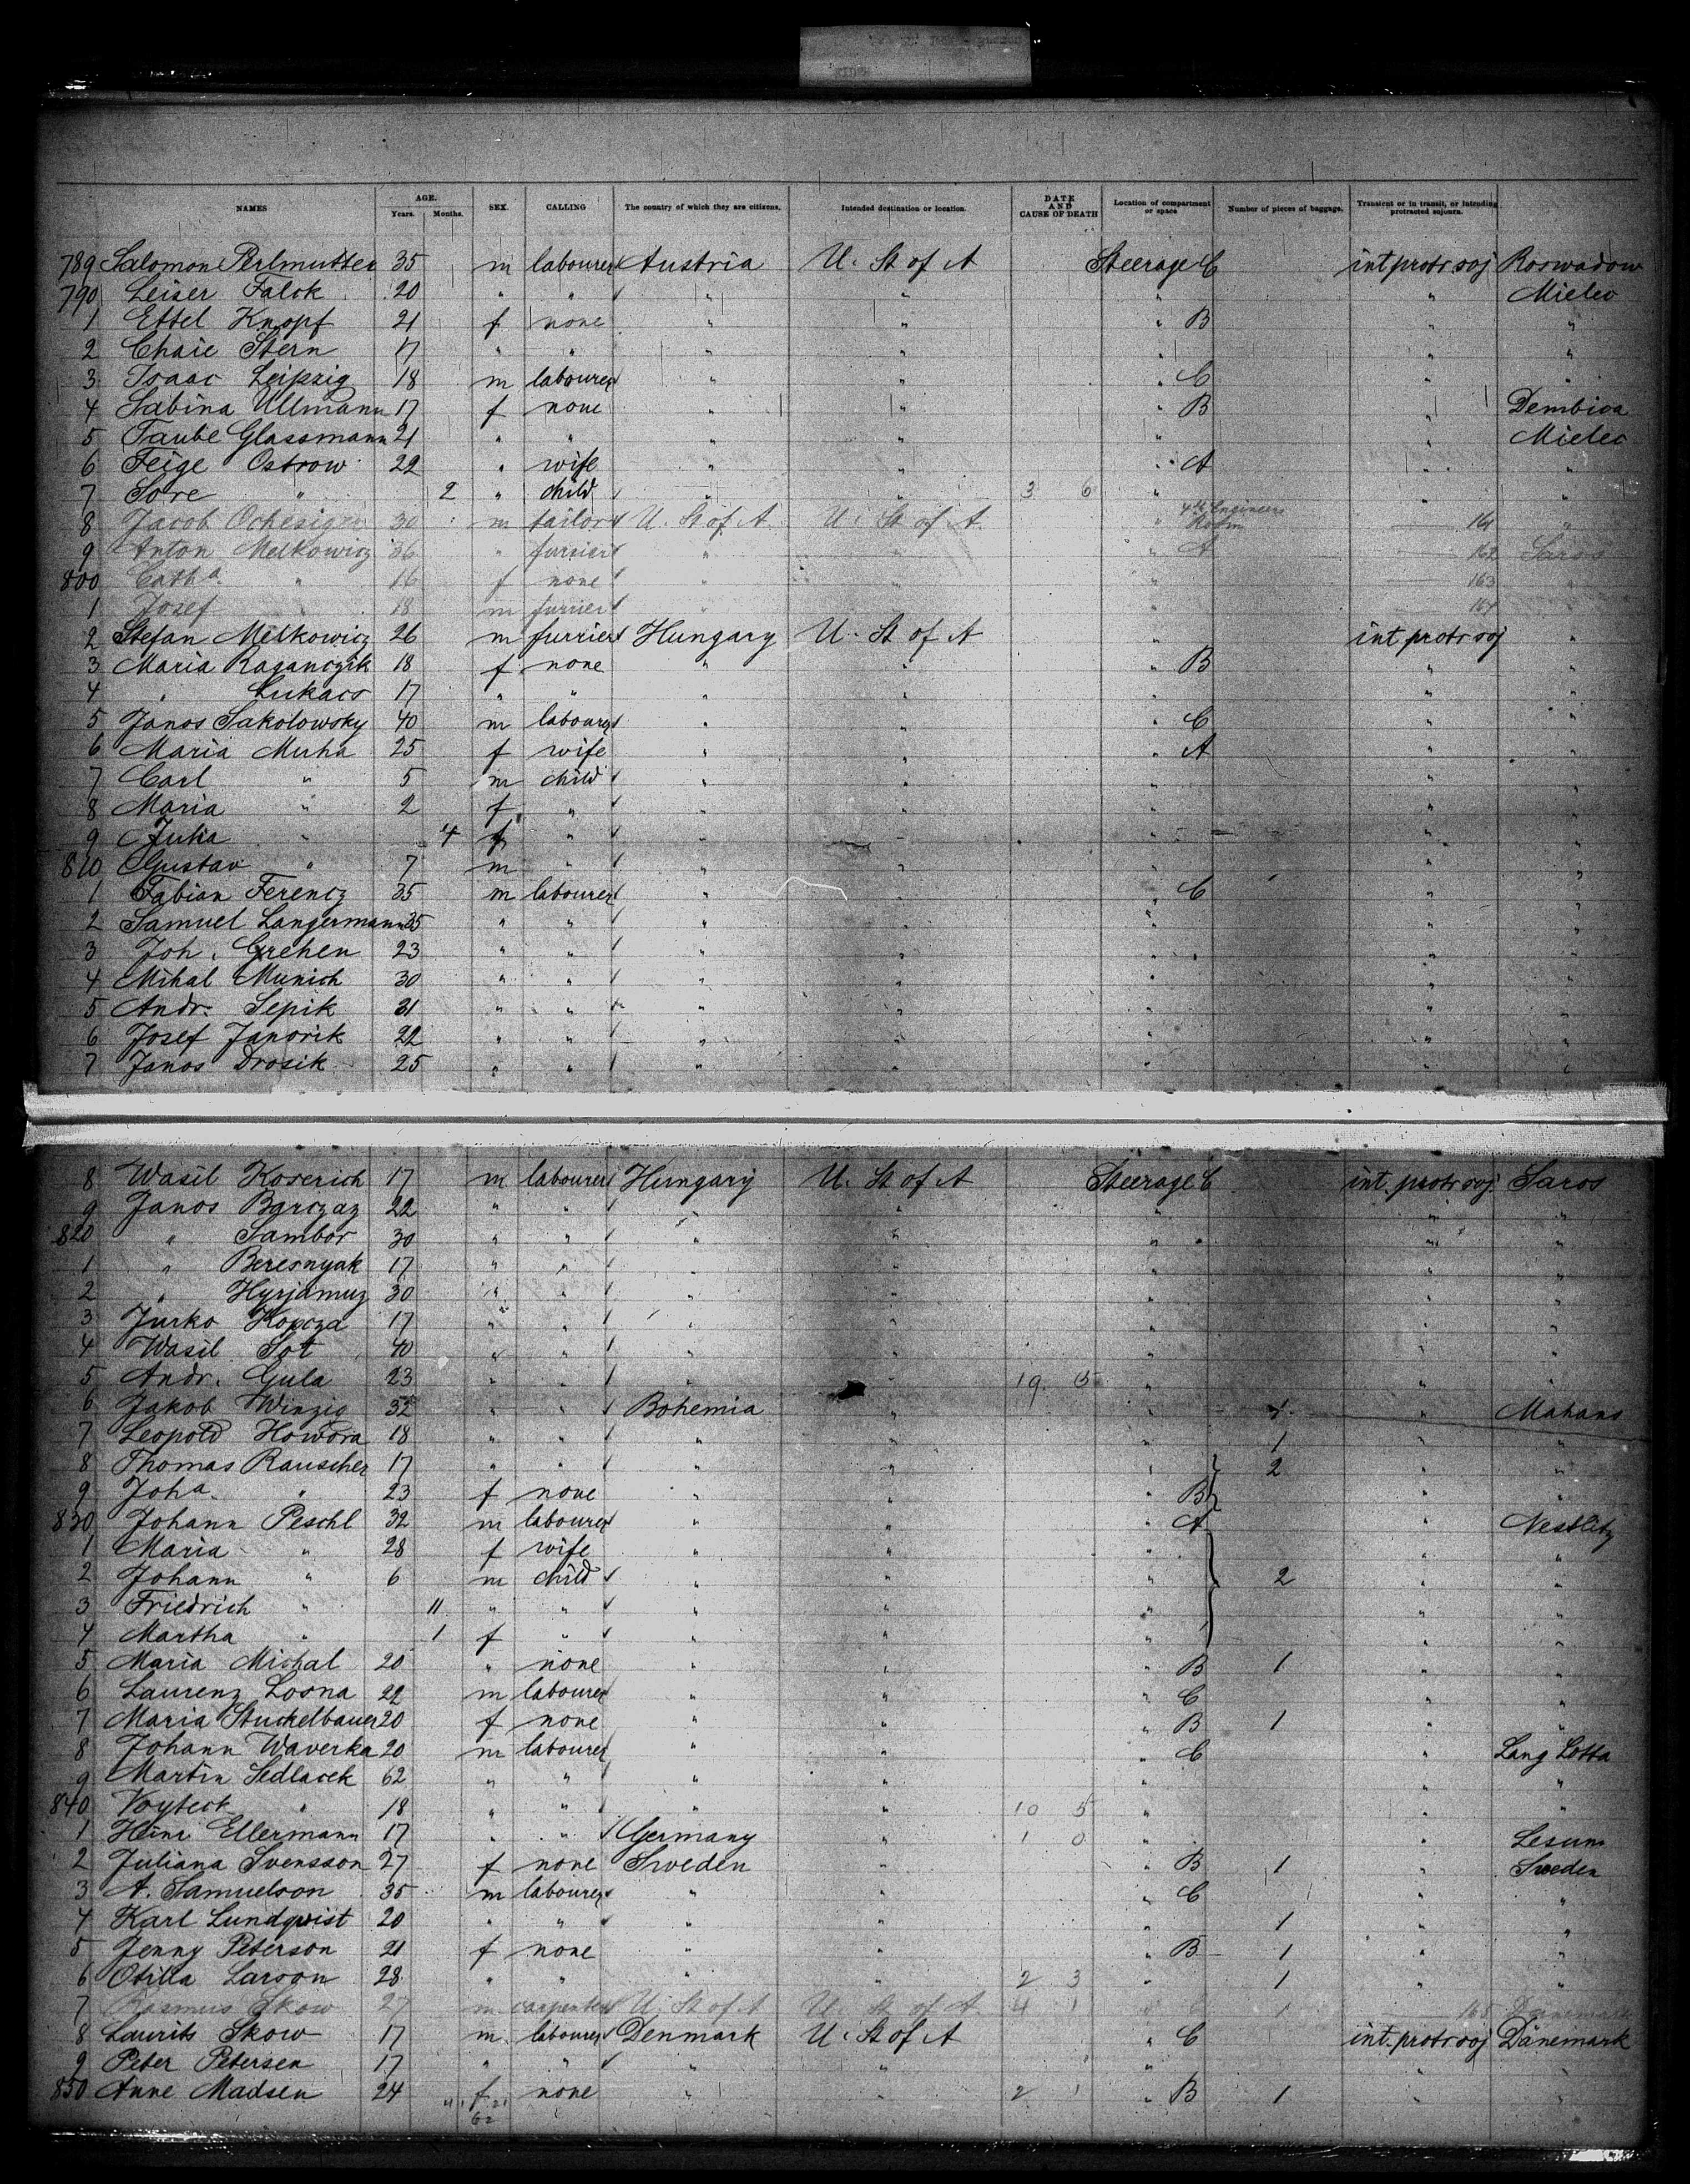 NAMES AGE. Years. Months. SEX. CALLING The country of which they are citizens. Intended destination or location. DATE AND CAUSE OF DEATH Location of compartment or space Number of pieces of baggage. Transient or in transit, or intending protracted sojourn.
789 Salomon Perlmutter 35 m labourer Austria U. St of A Steerage C int protr soj Roswadow
790 Leiser Falck 20 " " " " " " Mielec
1 Ettel Knopf 21 f none " " " B " "
2 Chaie Stern 17 " " " " " " "
3 Isaac Leipzig 18 m labourer " " " C " "
4 Sabina Ullmann 17 f none " " " B " Dembica
5 Taube Glassmann 21 " " " " " " Mielec
6 Feige Ostrow 22 " wife " " " A " "
7 Sore " 2 " child " " 3 6 " " "
8 Jacob 30 m tailor U. St of A U. St of A " 4th Engineers Room 161 "
9 Anton Melkowicz 36 " furrier " " " A 162 Saros
800 Catha " 16 f none " " " 163 "
1 Josef " 18 m furrier " " " 164 "
2 Stefan Melkowicz 26 m furrier Hungary U. St of A " int protr soj "
3 Maria Raganczik 18 f none " " " B " "
4 " Lukacs 17 " " " " " " "
5 Janos Sakolowsky 40 m labourer " " " C " "
6 Maria Muha 25 f wife " " " A " "
7 Carl " 5 m child " " " " "
8 Maria " 2 f " " " " " "
9 Julia " 4 f " " " " " "
810 Gustav " 7 m " " " " " "
1 Fabian Ferencz 35 m labourer " " " C " "
2 Samuel Langermann 35 " " " " " " "
3 Joh. Grehen 23 " " " " " " "
4 Mihal Munich 30 " " " " " " "
5 Andr. Sepik 31 " " " " " " "
6 Josef Janorik 22 " " " " " " "
7 Janos Drosik 25 " " " " " " "
8 Wasil Koserich 17 m labourer Hungary U. St of A Steerage C int. protr soj. Saros
9 Janos Barczaz 22 " " " " " " "
820 " Sambor 30 " " " " " " "
1 " Beresnyak 17 " " " " " " "
2 " Hyrjamuz 30 " " " " " " "
3 Jurko Kopcza 17 " " " " " " "
4 Wasil Sot 40 " " " " " " "
5 Andr. Gula 23 " " " " 19. 5 " " "
6 Jakob Winzig 32 " " Bohemia " " 1 " Mahans
7 Leopold Howora 18 " " " " " 1 " "
8 Thomas Rauscher 17 " " " " " 2 " "
9 Joha " 23 f none " " " B " "
830 Johann Peschl 32 m labourer " " " A " Nestlitz
1 Maria " 28 f wife " " " " "
2 Johann " 6 m child " " " 2 " "
3 Friedrich " 11 " " " " " " "
4 Martha " 1 f " " " " " "
5 Maria Michal 20 " none " " " B 1 " "
6 Laurenz Losna 22 m labourer " " " C " "
7 Maria Stuckelbauer 20 f none " " " B 1 " "
8 Johann Waverka 20 m labourer " " " C " Lang Lotta
9 Martin Sedlacek 62 " " " " " " "
840 Voyteck " 18 " " " " 10 5 " " "
1 Heinr Ellermann 17 " " Germany " 1 0 " " Lesum
2 Juliana Svensson 27 f none Sweden " " B 1 " Sweden
3 A. Samuelson 35 m labourer " " " C " "
4 Karl Lundqvist 20 " " " " " 1 " "
5 Jenny Peterson 21 f none " " " B 1 " "
6 Otilla Larson 28 " " " " 2 3 " 1 " "
7 Rasmus Skow 27 m carpenter U. St of A U. St of A 4 1 " C 1 165 Dänemark
8 Laurits Skow 17 m labourer Denmark U. St of A " C int. protr soj Dänemark
9 Peter Petersen 17 " " " " " " "
850 Anne Madsen 24 f none " " 2 1 " B 1 " "